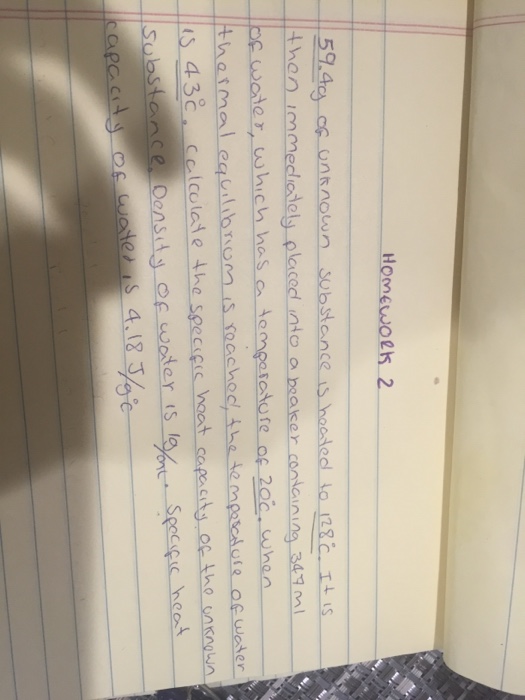 Homework 2
59.4g of unknown substance is heated to 128°C. It is
then immediately placed into a beaker containing 347 ml
of water, which has a temperature of 20°C. When
thermal equilibrium is reached, the temperature of water
is 43°C. calculate the specific heat capacity of the unknown
substance. Density of water is 1g/mL. Specific heat
capacity of water is 4.18 J/g°C